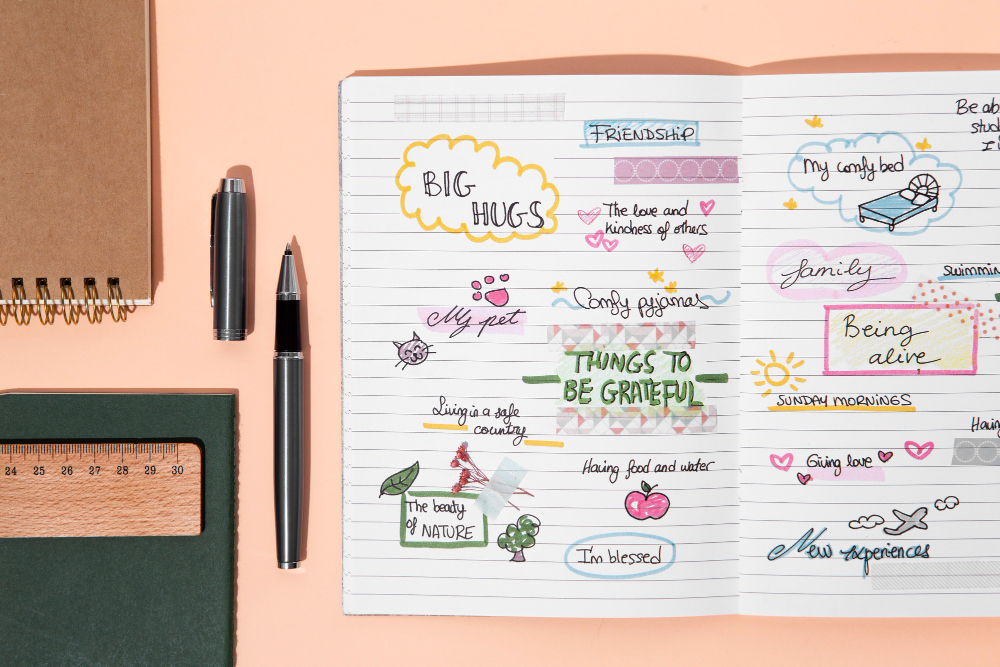 24 25 26 27 28 29 30
FRIENDSHIP
BIG
HUGS
The love and
kindness of others
My pet
Comfy pyjamas
THINGS TO
BE GRATEFUL
Living in a safe
country
Having food and water
The beauty
of NATURE
I'm blessed
Be ab
stud
I
My comfy bed
family
swimmin
Being
alive
SUNDAY MORNINGS
Havin
Giving love
New experiences